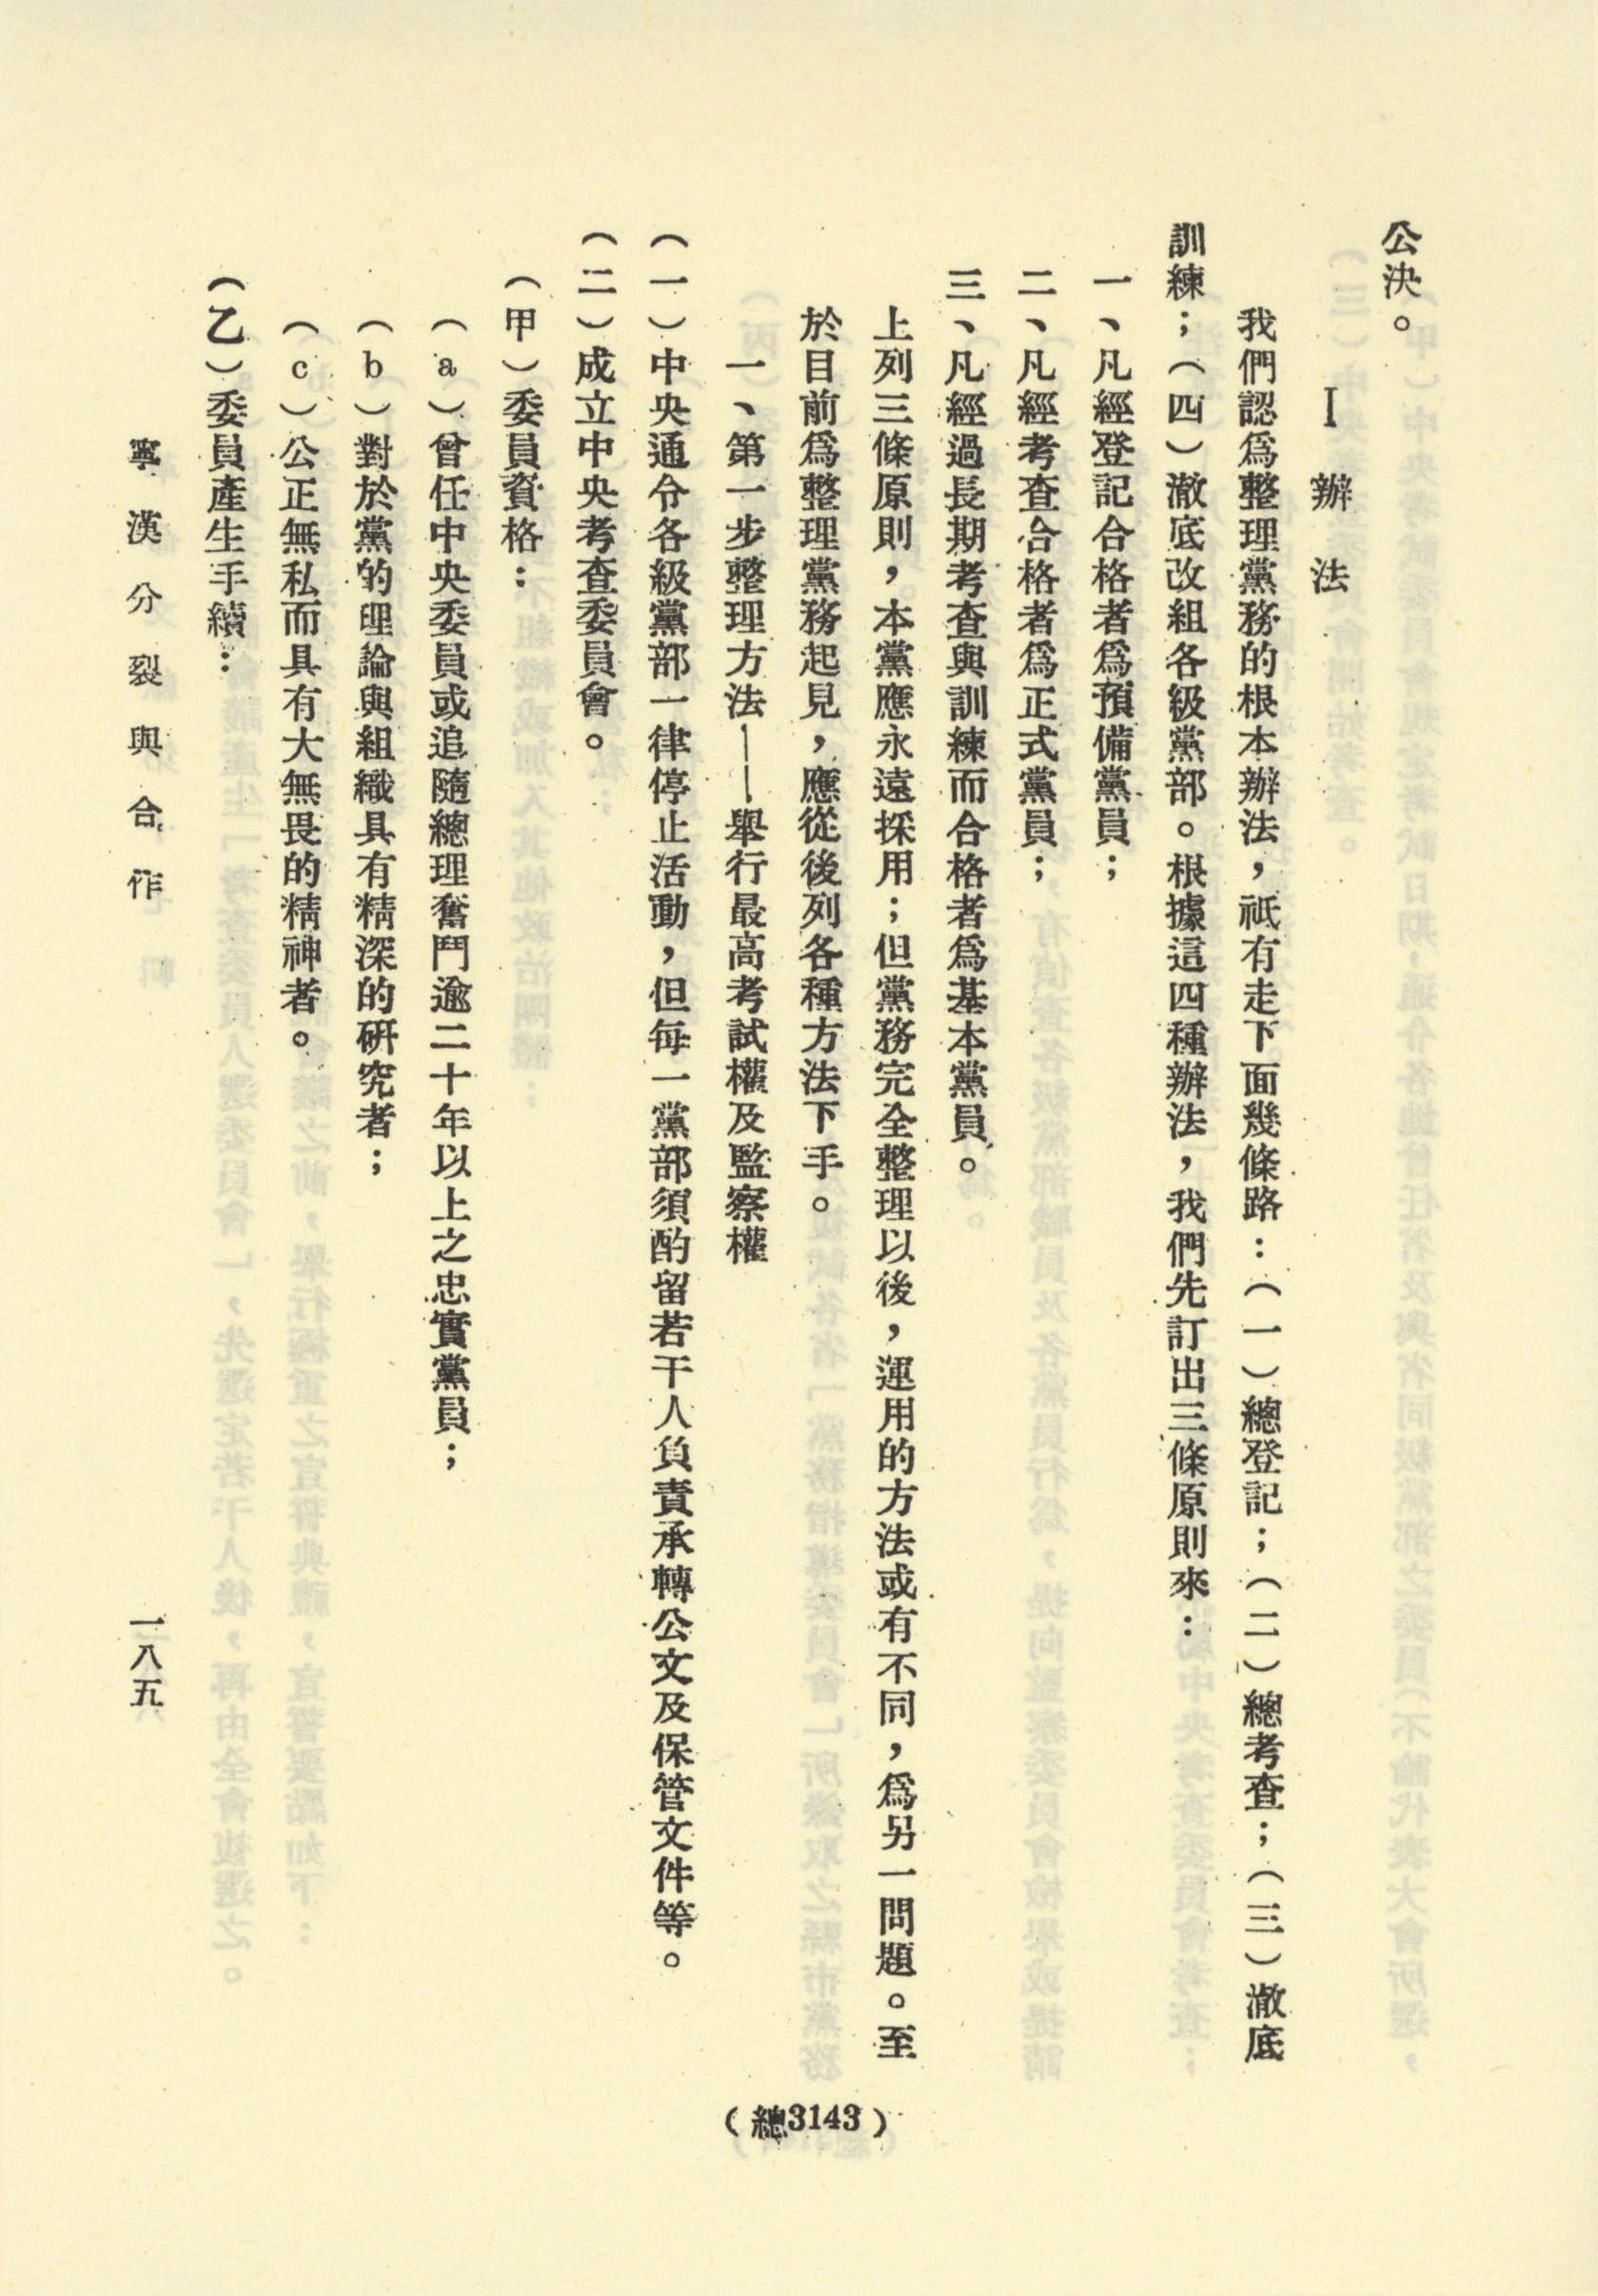 公決。
I 辦法
我們認爲整理黨務的根本辦法，祇有走下面幾條路：（一）總登記；（二）總考查；（三）澈底
訓練；（四）澈底改組各級黨部。根據這四種辦法，我們先訂出三條原則來：
一、凡經登記合格者爲預備黨員；
二、凡經考查合格者爲正式黨員；
三、凡經過長期考查與訓練而合格者爲基本黨員。
上列三條原則，本黨應永遠採用；但黨務完全整理以後，運用的方法或有不同，爲另一問題。至
於目前爲整理黨務起見，應從後列各種方法下手。
一、第一步整理方法——舉行最高考試權及監察權
（一）中央通令各級黨部一律停止活動，但每一黨部須酌留若干人負責承轉公文及保管文件等。
（二）成立中央考查委員會。
（甲）委員資格：
（a）曾任中央委員或追隨總理奮鬥逾二十年以上之忠實黨員；
（b）對於黨的理論與組織具有精深的研究者；
（c）公正無私而具有大無畏的精神者。
（乙）委員產生手續：
寧漢分裂與合作
一八五
（總3143）